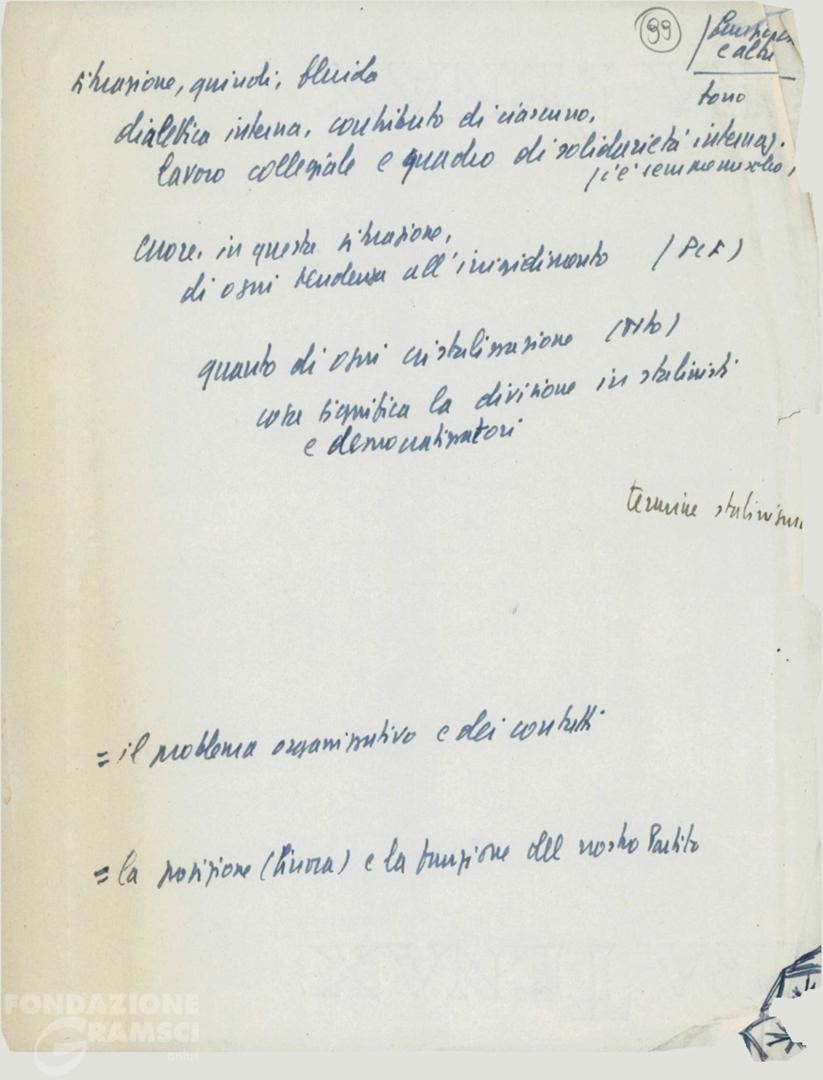 99
e altri
tono
situazione, quindi, fluida
dialettica interna, contributo di ciascuno,
lavoro collegiale e quadro di solidarietà internaz.
(c'è
in questa situazione,
di ogni tendenza all'irrigidimento (PCF)
quanto di ogni cristallizzazione (Tito)
cosa significa la divisione in stalinisti
e democratizzatori
termine stalinismo
= il problema organizzativo e dei contatti
= la posizione (finora) e la funzione del nostro Partito
FONDAZIONE
GRAMSCI
onlus